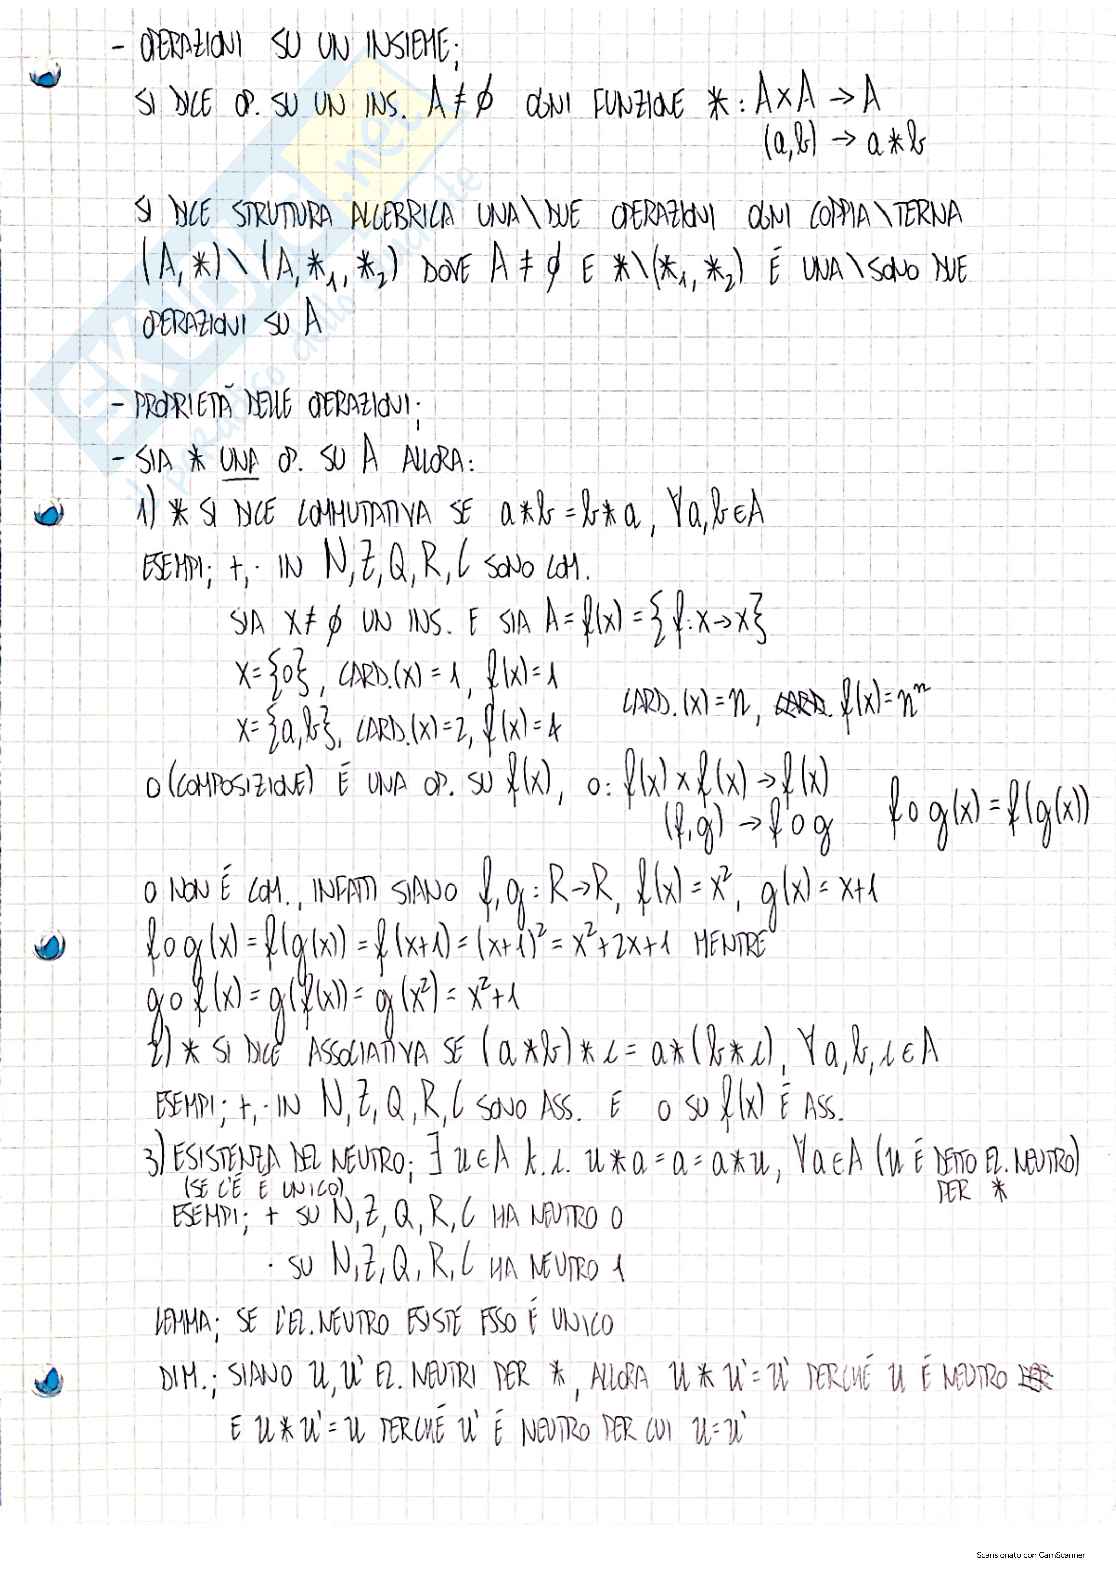 - OPERAZIONI SU UN INSIEME;
SI DICE OP. SU UN INS. A ≠ ∅ OGNI FUNZIONE * : A×A → A
(a,b) → a*b
SI DICE STRUTTURA ALGEBRICA UNA\DUE OPERAZIONI OGNI COPPIA\TERNA
(A,*)\(A,*₁,*₂) DOVE A ≠ ∅ E *\(*₁,*₂) É UNA\SONO DUE
OPERAZIONI SU A
- PROPRIETÀ DELLE OPERAZIONI;
- SIA * UNA OP. SU A ALLORA:
1) * SI DICE COMMUTATIVA SE a*b = b*a, ∀a,b∈A
ESEMPI; +,· IN N,Z,Q,R,C SONO COM.
SIA X ≠ ∅ UN INS. E SIA A = f(x) = {f:x→x}
X={0}, CARD.(X)=1, f(x)=1
X={a,b}, CARD.(X)=2, f(x)=4
CARD.(X)=n, f(x)=nⁿ
O (COMPOSIZIONE) É UNA OP. SU f(x), O: f(x)×f(x)→f(x)
(f,g) → f o g
f o g(x) = f(g(x))
O NON É COM., INFATTI SIANO f,g : R→R, f(x)=x², g(x)=x+1
f o g(x) = f(g(x)) = f(x+1) = (x+1)² = x²+2x+1 MENTRE
g o f(x) = g(f(x)) = g(x²) = x²+1
2) * SI DICE ASSOCIATIVA SE (a*b)*c = a*(b*c), ∀a,b,c∈A
ESEMPI; +,· IN N,Z,Q,R,C SONO ASS. E O SU f(x) É ASS.
3) ESISTENZA DEL NEUTRO; ∃ u∈A t.c. u*a = a = a*u, ∀a∈A (u É DETTO EL. NEUTRO)
PER *
(SE C'É É UNICO)
ESEMPI; + SU N,Z,Q,R,C HA NEUTRO 0
· SU N,Z,Q,R,C HA NEUTRO 1
LEMMA; SE L'EL. NEUTRO ESISTE ESSO É UNICO
DIM.; SIANO u,u' EL. NEUTRI PER *, ALLORA u*u'=u' PERCHÉ u É NEUTRO
E u*u'=u PERCHÉ u' É NEUTRO PER CUI u=u'
Scansionato con CamScanner